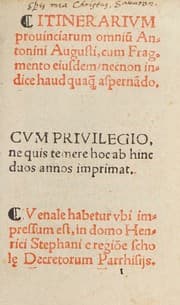 Spes mea Christus,
ITINERARIVM
prouinciarum omniū An-
tonini Augusti, cum Frag-
mento eiusdem: necnon in
dice haud quaq̃ aspernādo.
CVM PRIVILEGIO,
ne quis temere hoc ab hinc
duos annos imprimat.
Venale habetur vbi im-
pressum est, in domo Hen-
rici Stephani e regiōe scho
lę Decretorum Parrhisijs.